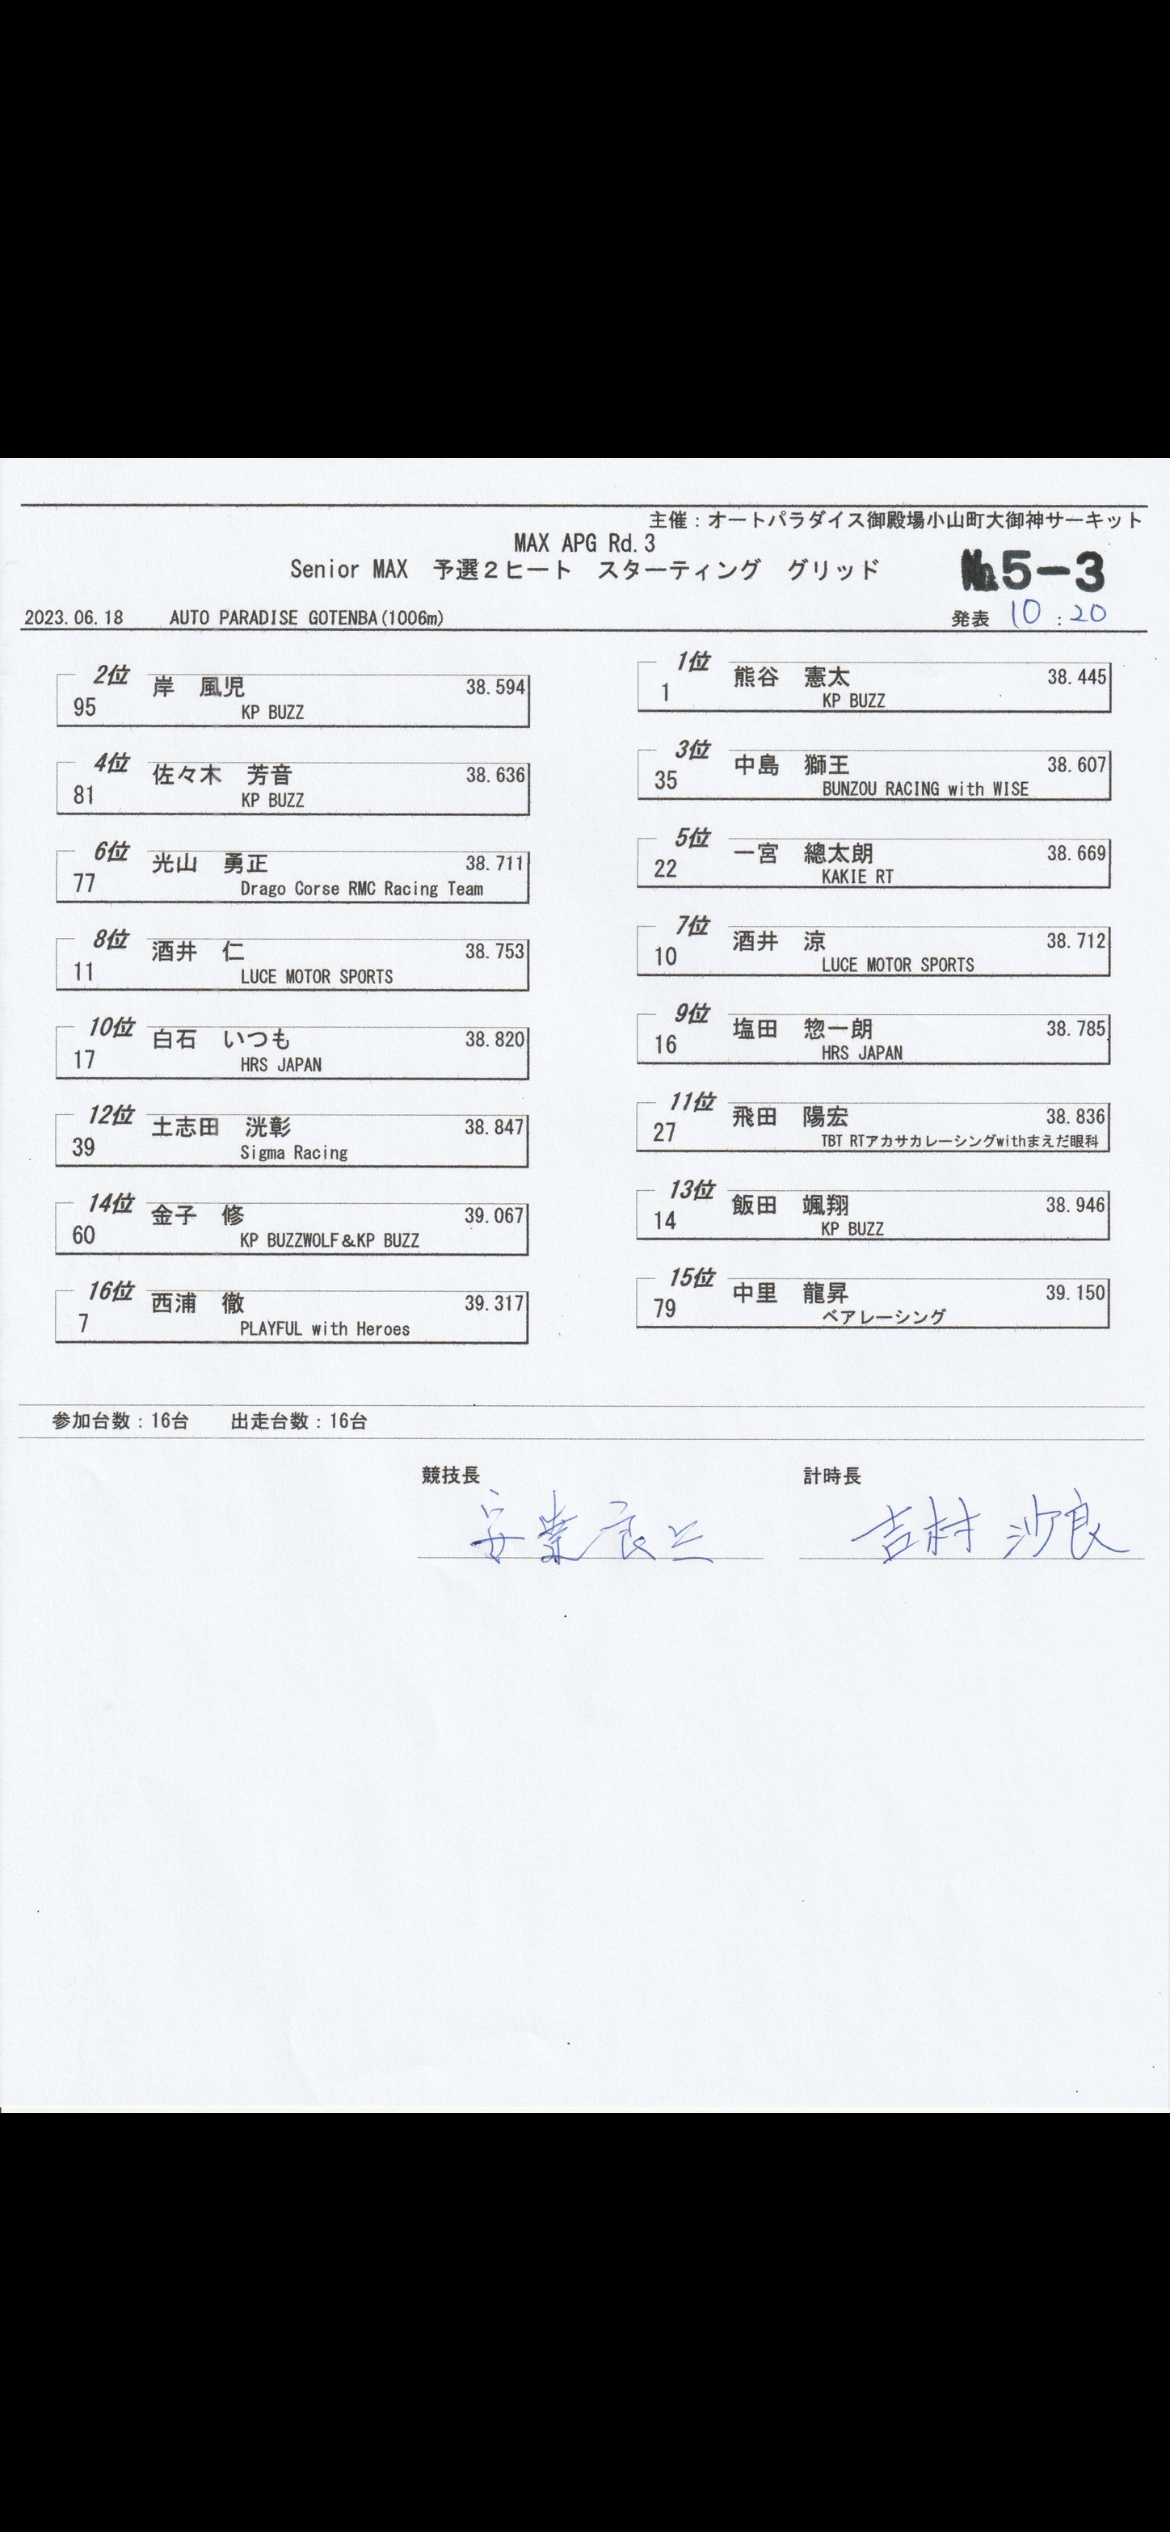 主催：オートパラダイス御殿場小山町大御神サーキット
MAX APG Rd.3
Senior MAX 予選２ヒート スターティング グリッド
№5-3
2023.06.18 AUTO PARADISE GOTENBA(1006m)
発表 10:20
1位 熊谷 憲太 38.445
1 KP BUZZ
2位 岸 風児 38.594
95 KP BUZZ
3位 中島 獅王 38.607
35 BUNZOU RACING with WISE
4位 佐々木 芳音 38.636
81 KP BUZZ
5位 一宮 總太朗 38.669
22 KAKIE RT
6位 光山 勇正 38.711
77 Drago Corse RMC Racing Team
7位 酒井 涼 38.712
10 LUCE MOTOR SPORTS
8位 酒井 仁 38.753
11 LUCE MOTOR SPORTS
9位 塩田 惣一朗 38.785
16 HRS JAPAN
10位 白石 いつも 38.820
17 HRS JAPAN
11位 飛田 陽宏 38.836
27 TBT RTアカサカレーシングwithまえだ眼科
12位 土志田 洸彰 38.847
39 Sigma Racing
13位 飯田 颯翔 38.946
14 KP BUZZ
14位 金子 修 39.067
60 KP BUZZWOLF＆KP BUZZ
15位 中里 龍昇 39.150
79 ベアレーシング
16位 西浦 徹 39.317
7 PLAYFUL with Heroes
参加台数：16台 出走台数：16台
競技長
計時長
吉村 沙良